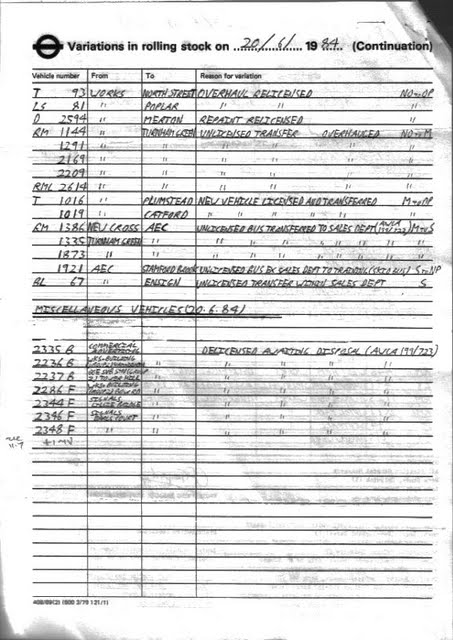 Variations in rolling stock on 20/6/ 19 84 (Continuation)
Vehicle number From To Reason for variation
T 93 WORKS NORTH STREET OVERHAUL RELICENSED NO to OP
LS 81 " POPLAR " " "
D 2594 " MERTON REPAINT RELICENSED "
RM 1144 " TURNHAM GREEN UNLICENSED TRANSFER OVERHAULED NO to M
1291 " " " " "
2169 " " " " "
2209 " " " " "
RML 2614 " " " " "
T 1016 " PLUMSTEAD NEW VEHICLE LICENSED AND TRANSFERRED M to OP
1019 " CATFORD " " " " "
RM 1386 NEW CROSS AEC UNLICENSED BUS TRANSFERRED TO SALES DEPT (AVLA 199/723) M to S
1335 TURNHAM GREEN " " " " " " " "
1873 " " " " " " " " "
1921 AEC STAMFORD BROOK UNLICENSED BUS EX SALES DEPT TO TRAINING (SKID BUS) S to NP
RL 67 " ENSIGN UNLICENSED TRANSFER WITHIN SALES DEPT S
MISCELLANEOUS VEHICLES (20.6.84)
2335 B COMMERCIAL ADVERTISING DELICENSED AWAITING DISPOSAL (AVLA 199/723)
2236 B WKS. BUILDING " " " "
2237 B " " " "
2286 F WKS BUILDING " " " "
2344 F SIGNALS " " " "
2346 F SIGNALS EARLS COURT " " " "
2348 F " " " " "
+1 MV
11.7
408/89(2) (600 3/79 121/1)